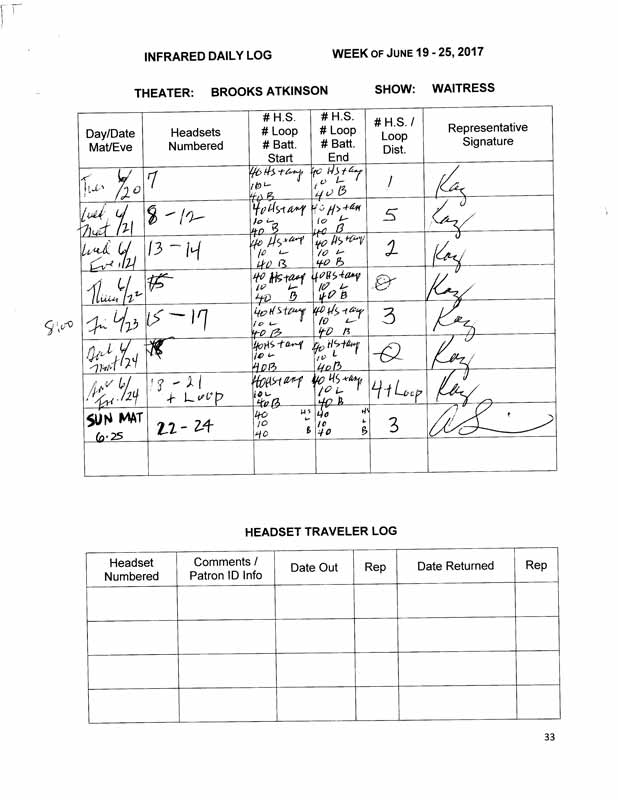 INFRARED DAILY LOG WEEK OF JUNE 19 - 25, 2017
THEATER: BROOKS ATKINSON SHOW: WAITRESS
Day/Date Mat/Eve Headsets Numbered # H.S. # Loop # Batt. Start # H.S. # Loop # Batt. End # H.S. / Loop Dist. Representative Signature
Tues 6/20 7 40 HS + ang 10 L 40 B 40 HS + ang 10 L 40 B 1 Kay
Wed Mat 6/21 8 - 12 40 HS + ang 10 L 40 B 40 HS + ang 10 L 40 B 5 Kay
Wed Eve 6/21 13 - 14 40 HS + ang 10 L 40 B 40 HS + ang 10 L 40 B 2 Kay
Thurs 6/22 40 HS + ang 10 L 40 B 40 HS + ang 10 L 40 B 0 Kay
8:00 Fri 6/23 15 - 17 40 HS + ang 10 L 40 B 40 HS + ang 10 L 40 B 3 Kay
Sat Mat 6/24 40 HS + ang 10 L 40 B 40 HS + ang 10 L 40 B 0 Kay
6/24 18 - 21 + Loop 40 HS + ang 10 L 40 B 40 HS + ang 10 L 40 B 4 + Loop Kay
SUN MAT 6.25 22 - 24 40 HS 10 L 40 B 40 HS 10 L 40 B 3
HEADSET TRAVELER LOG
Headset Numbered Comments / Patron ID Info Date Out Rep Date Returned Rep
33